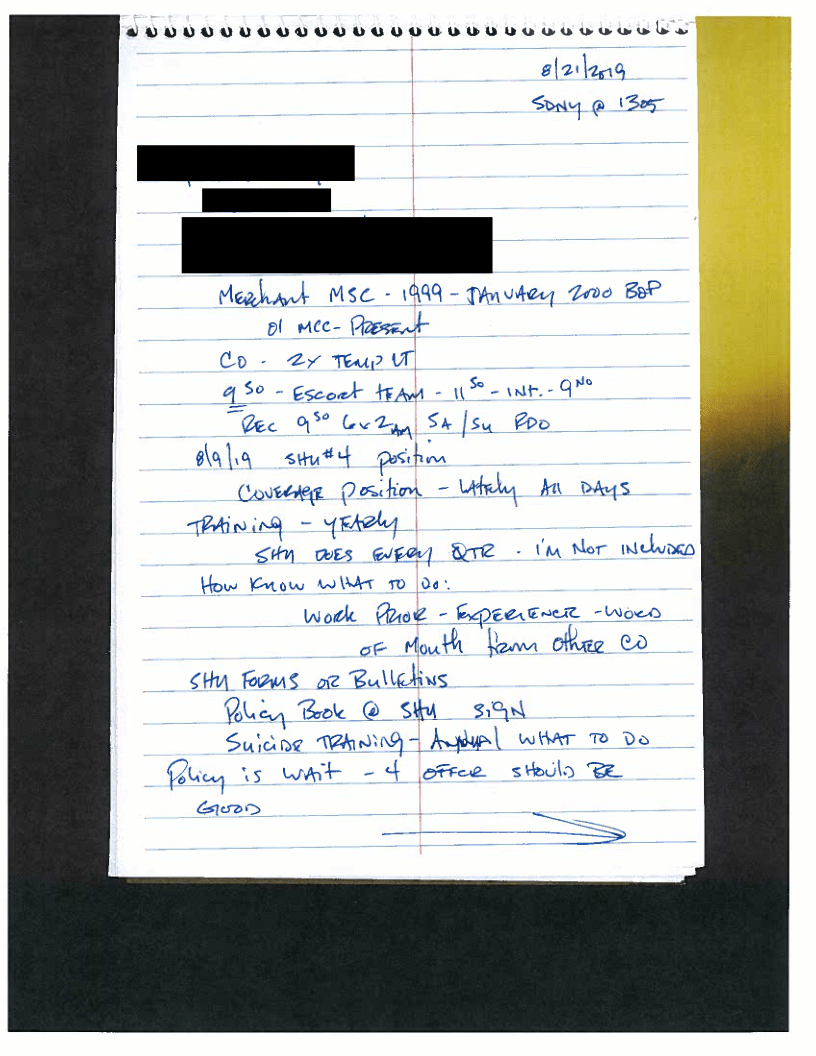 8/21/2019
SDNY @ 1305
Merchant MSC - 1999 - JANUARY 2000 BOP
01 MCC - PRESENT
CO - 2Y TEMP LT
9 SO - ESCORT TEAM - 11 SO - INT. - 9 NO
REC 9 SO 6x2 AM SA/SU RDO
8/9/19 SHU #4 position
COVERAGE Position - LATELY All DAYS
TRAINING - YEARLY
SHU DOES EVERY QTR - I'M NOT INCLUDED
How KNOW WHAT TO DO:
WORK PRIOR - EXPERIENCE - WORD
OF Mouth from other CO
SHU FORMS OR BULLETINS
Policy Book @ SHU SIGN
Suicide TRAINING - ANNUAL WHAT TO DO
Policy is WAIT - 4 OFFCR SHOULD BE
GOOD